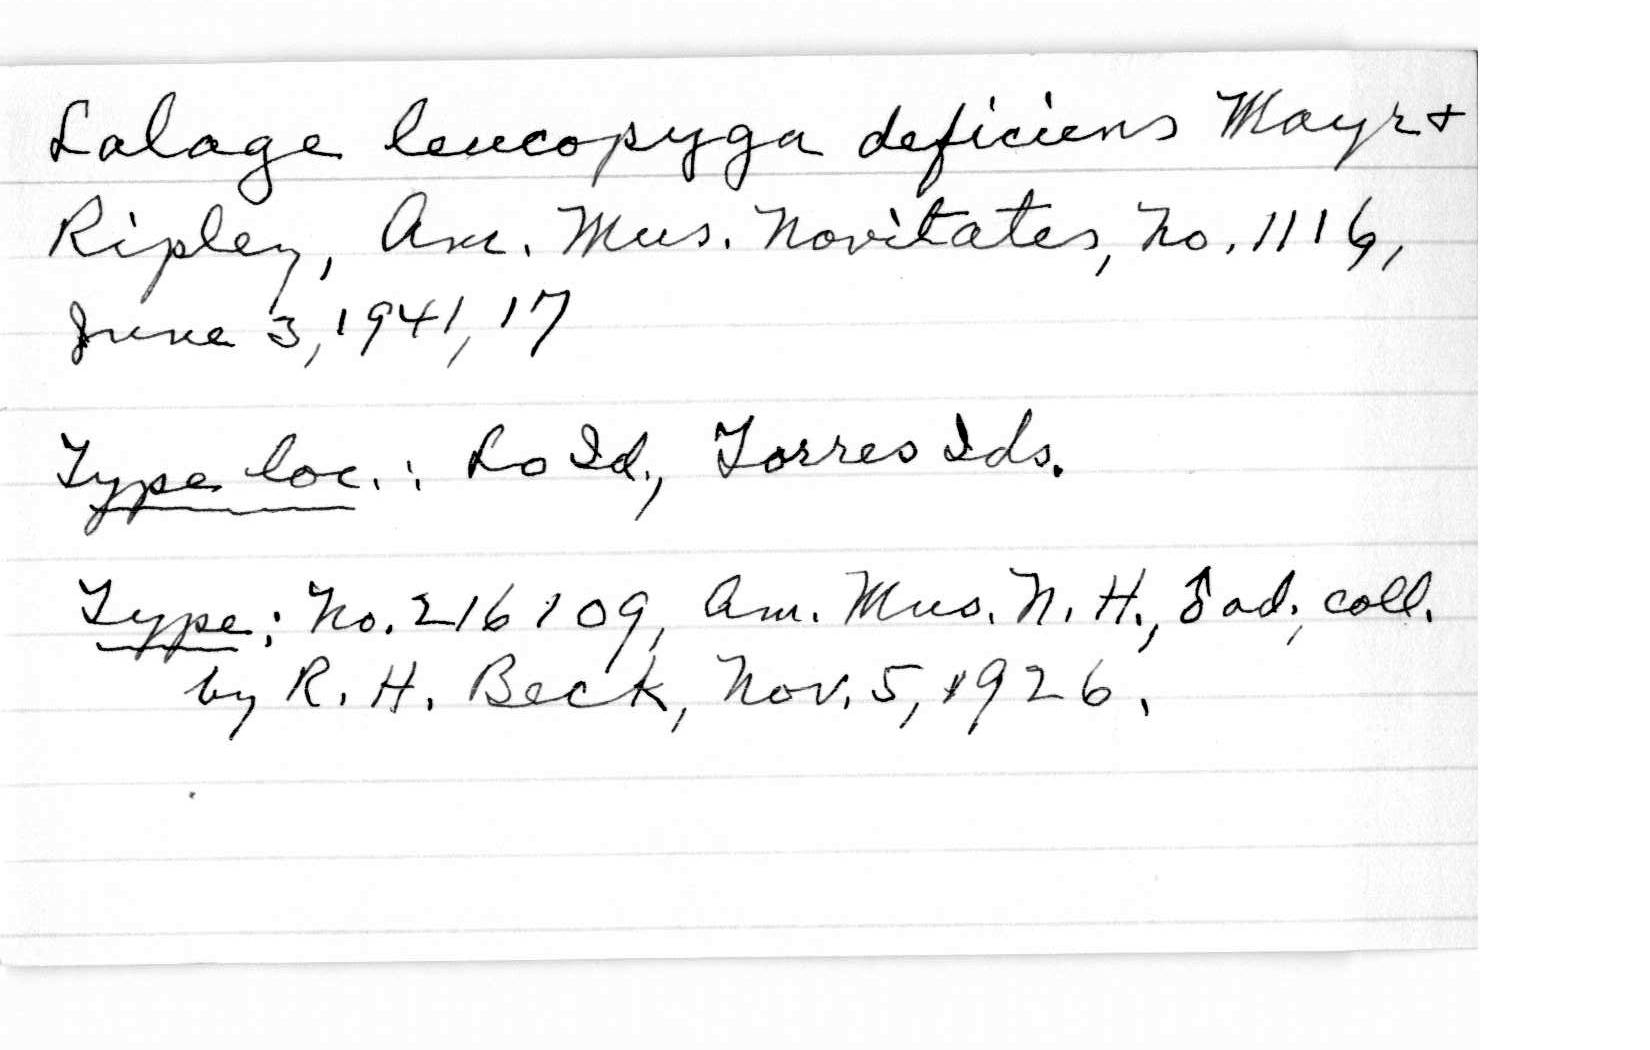 Lalage leucopyga deficiens Mayr +
Ripley, Am. Mus. Novitates, No. 1116,
June 3, 1941, 17
Type loc.: Lo Id., Torres Ids.
Type: No. 216109, Am. Mus. N. H., ♂ ad., coll.
by R. H. Beck, Nov. 5, 1926.